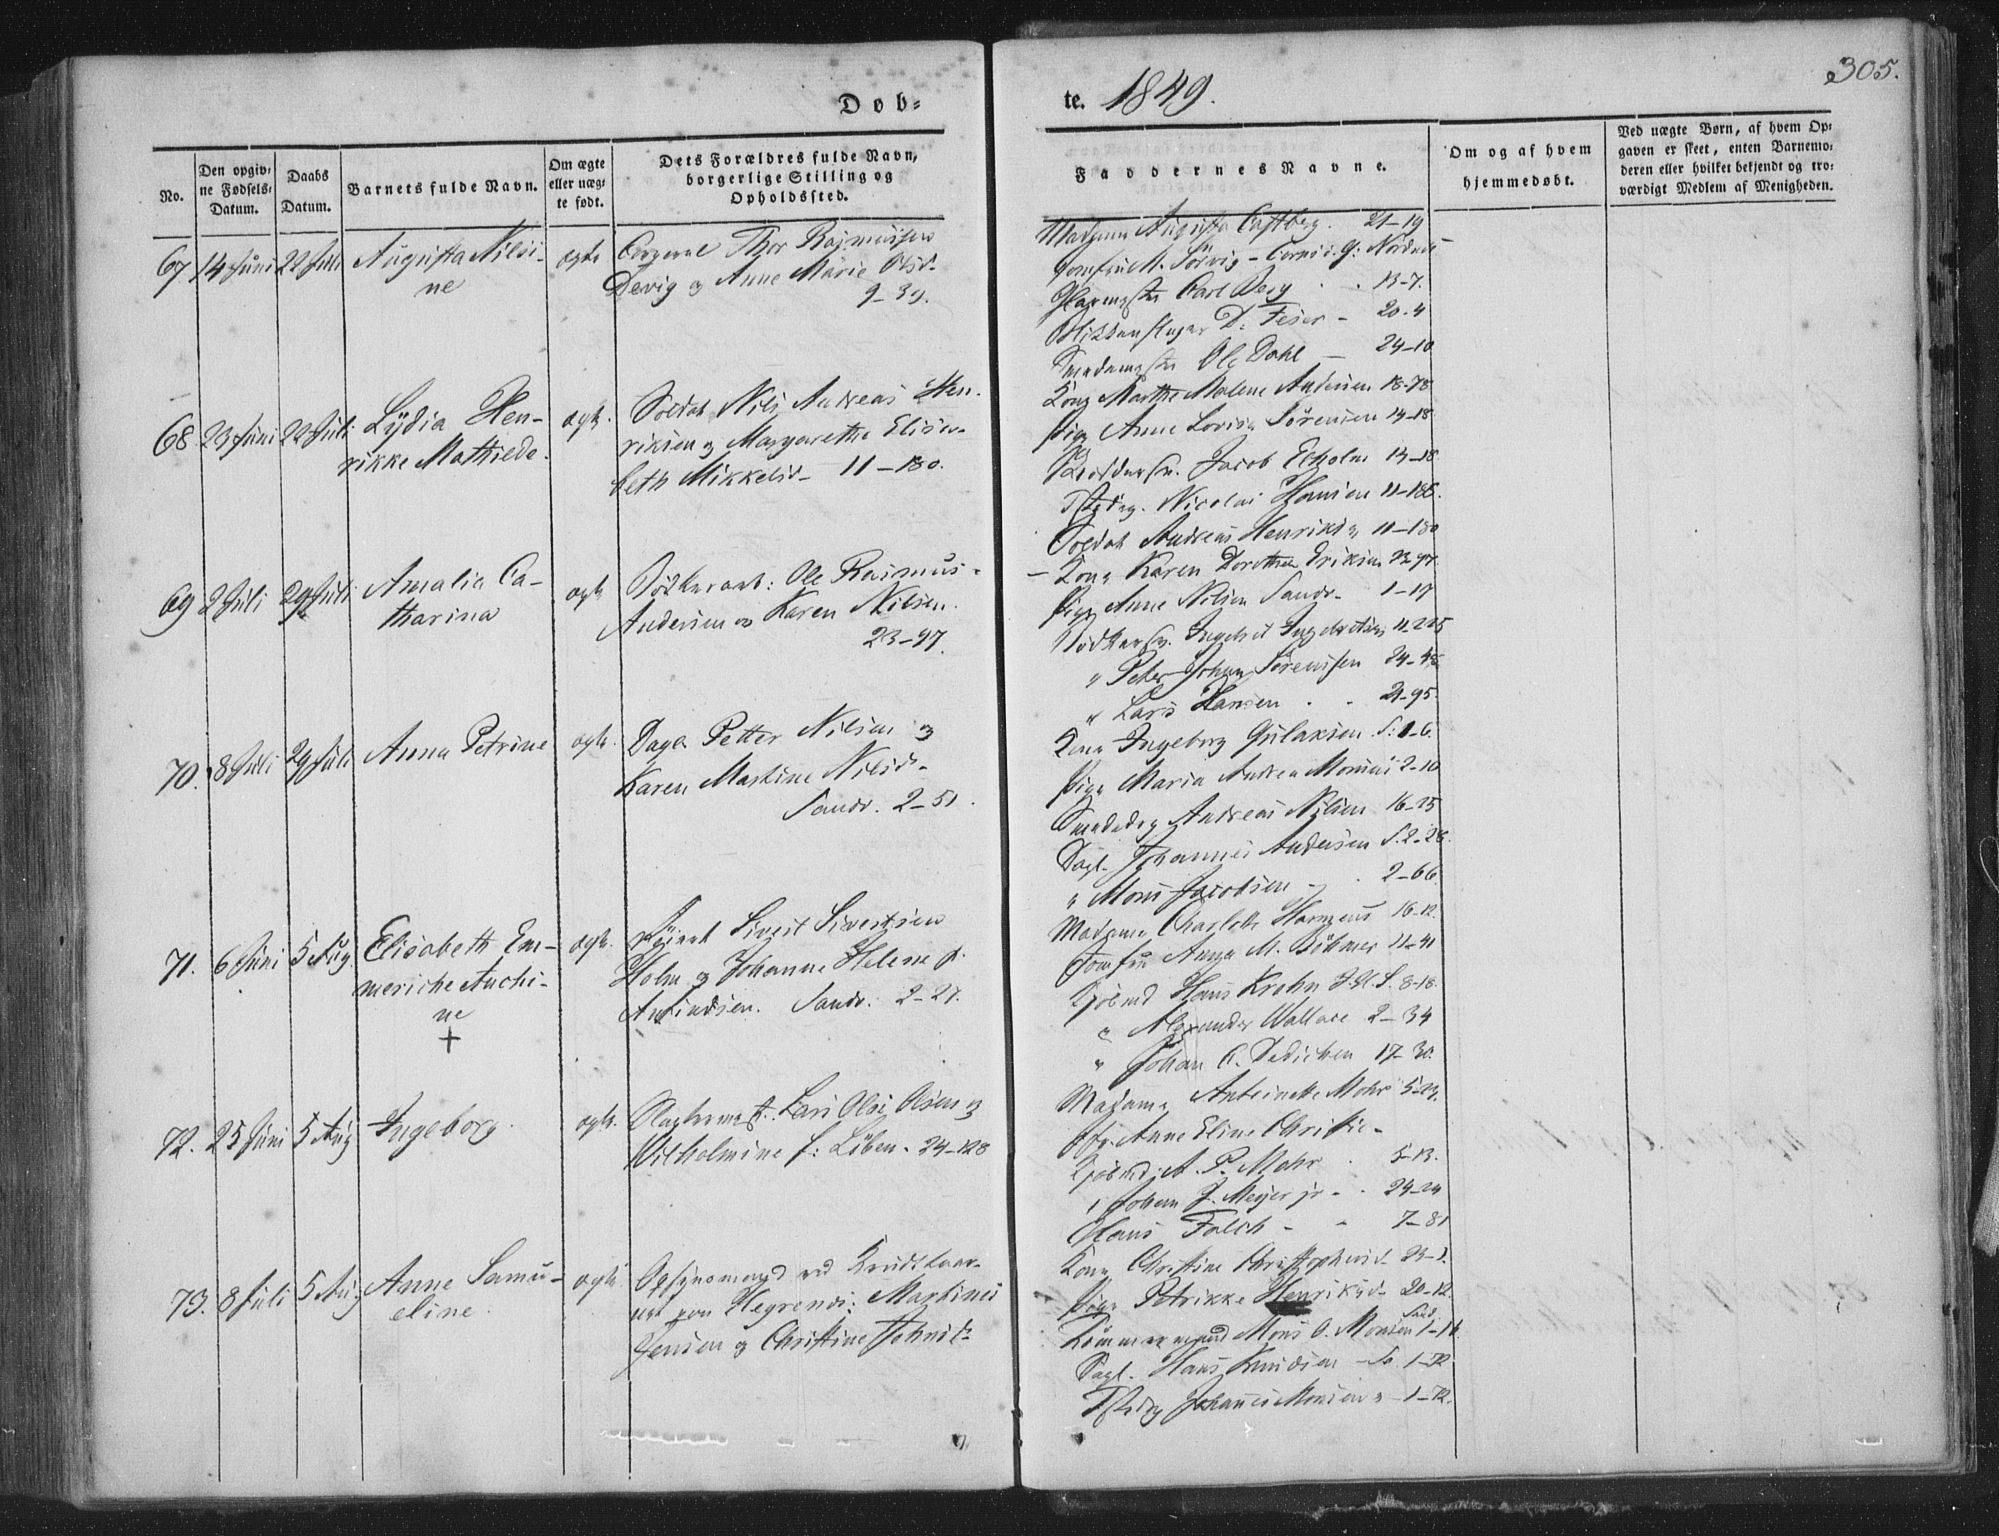 305.
Døb-
te. 1849.
No.
Den opgiv-
ne Fødsels-
Datum.
Daabs
Datum.
Barnets fulde Navn.
Om ægte
eller uæg-
te født.
Dets Forældres fulde Navn,
borgerlige Stilling og
Opholdssted.
Faddernes Navne.
Om og af hvem
hjemmedøbt.
Ved uægte Børn, af hvem Op-
gaven er skeet, enten Barnemo-
deren eller hvilket bekjendt og tro-
værdigt Medlem af Menigheden.
67 14 Juni 22 Juli Augusta Nilsi-
ne
ægte
Thor Rasmussen
Devig og Anne Marie Olsd.
9-39.
Madame Augusta Castberg. 21-19
Jomfru M. Sörvig
Carl Berg 13-7.
D. Feser - 20-4
Ole Dahl - 24-10
68 23 Juni 22 Juli Lydia Hen-
rikke Mathilde.
ægte.
Soldat Nils Andreas Hen-
riksen og Margarethe Elisa-
beth Mikkelsd- 11-180.
Kone Marthe Malene Andersen 18-78
Pige Anne Lovise Sörensen 14-18
Jacob Ekholm 13-18
Nicolai Hansen 11-186.
Soldat Andreas Henriksen 11-180
69 2 Juli 29 Juli Amalia Ca-
tharina
ægte
Ole Rasmus
Andersen og Karen Nilsen.
23-97.
Kone Karen Dorothea Eriksen 23-97
Pige Anne Nilsen Sandv. 1-19
11-225
" Peter Johan Sörensen 24-48
" Lars Hansen 21-95
70. 8 Juli 29 Juli Anna Petrine
ægte.
Dagl. Petter Nilsen og
Karen Martine Nilsd-
Sandv. 2-51.
Kone Ingeborg Gulaksen S: 1-6.
Pige Maria Andrea Monsen 2-10
Andreas Nilsen 16-25
Dagl. Johannes Andersen S. 2-28.
" Mons Jacobsen - 2-66
71. 6 Juni 5 Aug. Elisabeth Em-
meriche Anchi-
ne
+
ægte.
Sivert Sivertsen
Holm og Johanne Helene f.
Amundsen. Sandv. 2-27.
Madame Charlotte 16-12
Jomfru Anna M. Böhmer 11-41
Kjöbmd Hans Krohn 8-18.
" Alexander Wallace 2-34
" Johan C. Dedichen 17-30.
72. 25 Juni 5 Aug Ingeborg.
ægte.
Lars Olai Olsen og
Wilhelmine f: Löben. 24-128
Madame Antoinette Mohr 5-13.
Anne Eline Christie-
Kjöbmd. A. P. Mohr 5-13.
" Johan J. Meyer jr - 24-24
Hans Falch - 7-81
73. 8 Juli 5 Aug Anne Samu-
eline
ægte.
Opsynsmand ved
Martinus
Jensen og Christine
Kone Christine Christophersd- 23-1.
Pige Petrikke Henriksd- 20-12
Tömmermand Mons O. Monsen Sand 1-16.
Dagl. Hans Knudsen - S. 1-72
Johannes Monsen " - 1-72.